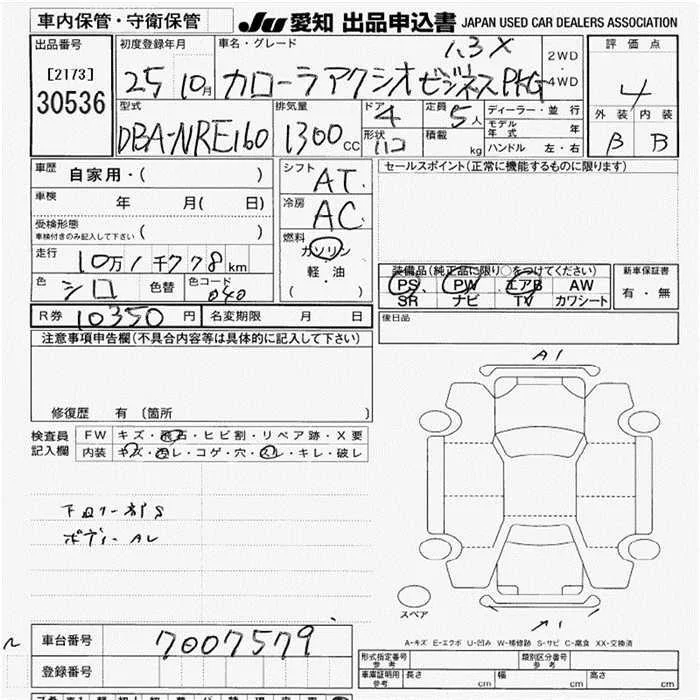 車内保管・守衛保管 JU 愛知 出品申込書 JAPAN USED CAR DEALERS ASSOCIATION
出品番号 初度登録年月 車名・グレード 1.3X 2WD 4WD 評価点
[2173] 25 10月 カローラアクシオ ビジネスPKG 4
30536 型式 排気量 ドア 4 定員 5人 ディーラー・並行 外装 内装
DBA-NRE160 1300cc 形状 ハコ 積載 kg モデル年式 年 B B
ハンドル 左・右
車歴 自家用・( ) シフト AT セールスポイント(正常に機能するものに限ります)
車検 年 月( 日) 冷房 AC
受検形態 車検付きのみ記入して下さい ( )
走行 10万1千778km 燃料 ガソリン 軽油 ( )
装備品(純正品に限り○をつけてください) 新車保証書
色 シロ 色替 色コード 040 PS PW エアB AW 有・無
SR ナビ TV カワシート
R券 10350円 名変期限 月 日 後日品
注意事項申告欄(不具合内容等は具体的に記入して下さい)
A1
修復歴 有 〔箇所 〕
検査員記入欄 FW キズ・飛石・ヒビ割・リペア跡・X要
内装 キズ・汚レ・コゲ・穴・スレ・キレ・破レ
ボディー AU
スペア
A1
A-キズ E-エクボ U-凹み W-補修跡 S-サビ C-腐食 XX-交換済
車台番号 7007579
登録番号
形式指定番号 参考 類別区分番号 参考
車庫証明用 参考 長さ cm 幅 cm 高さ cm